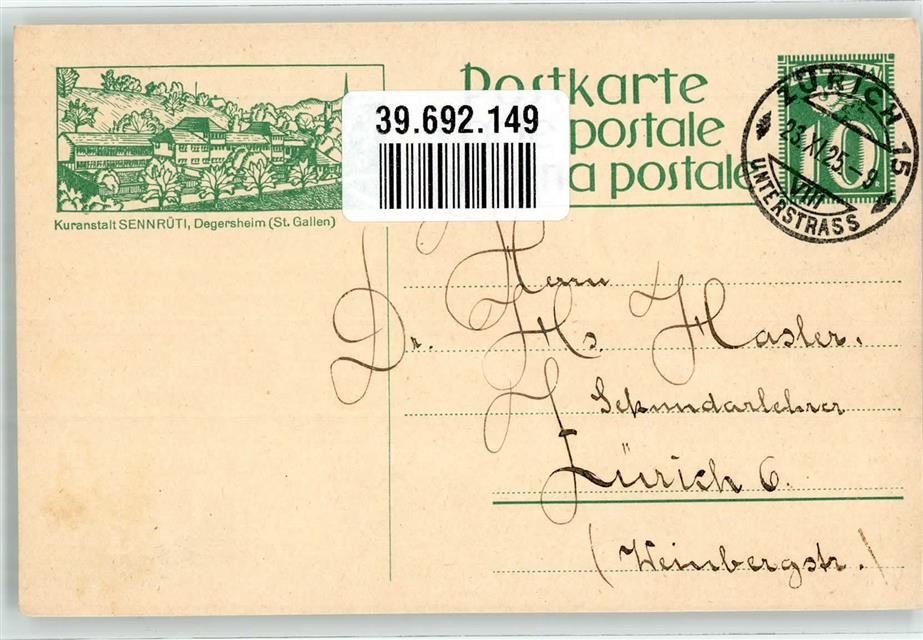 Kuranstalt SENNRÜTI, Degersheim (St. Gallen)
39.692.149
Postkarte
postale
a postale
10
ZÜRICH 15
23.XI.25.-9
VIII
UNTERSTRASS
Herrn
Dr. Hs Hasler.
Sekundarlehrer
Zürich 6.
(Weinbergstr.)